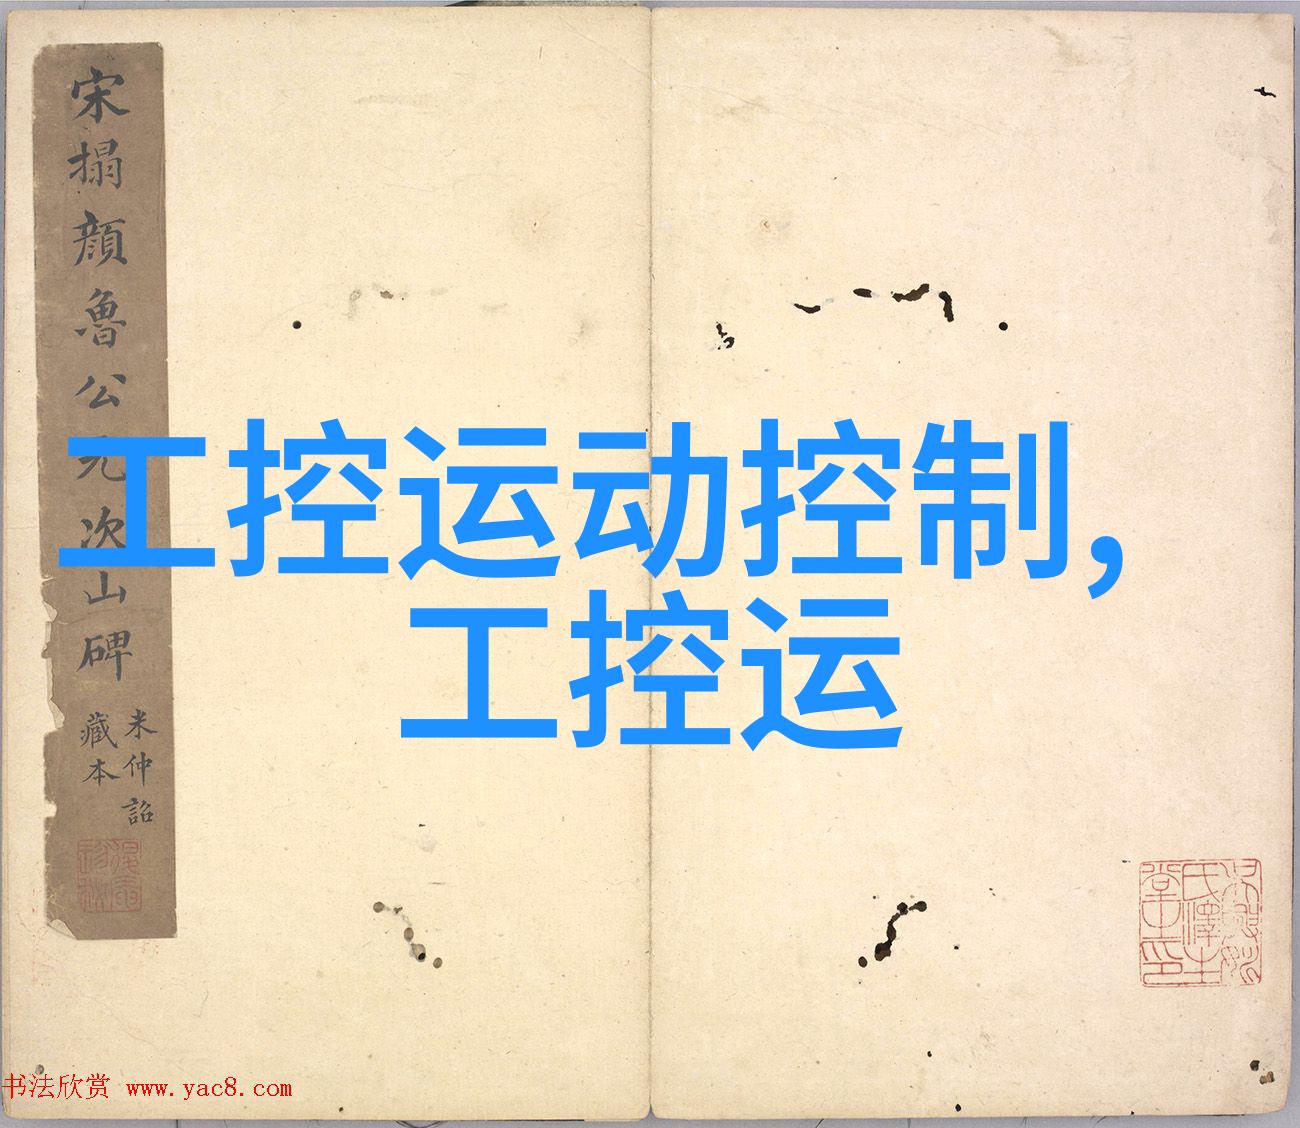 宋搨顏魯公元次山碑
米仲詔
藏本
工控运动控制,
工控运
书法欣赏 www.yac8.com